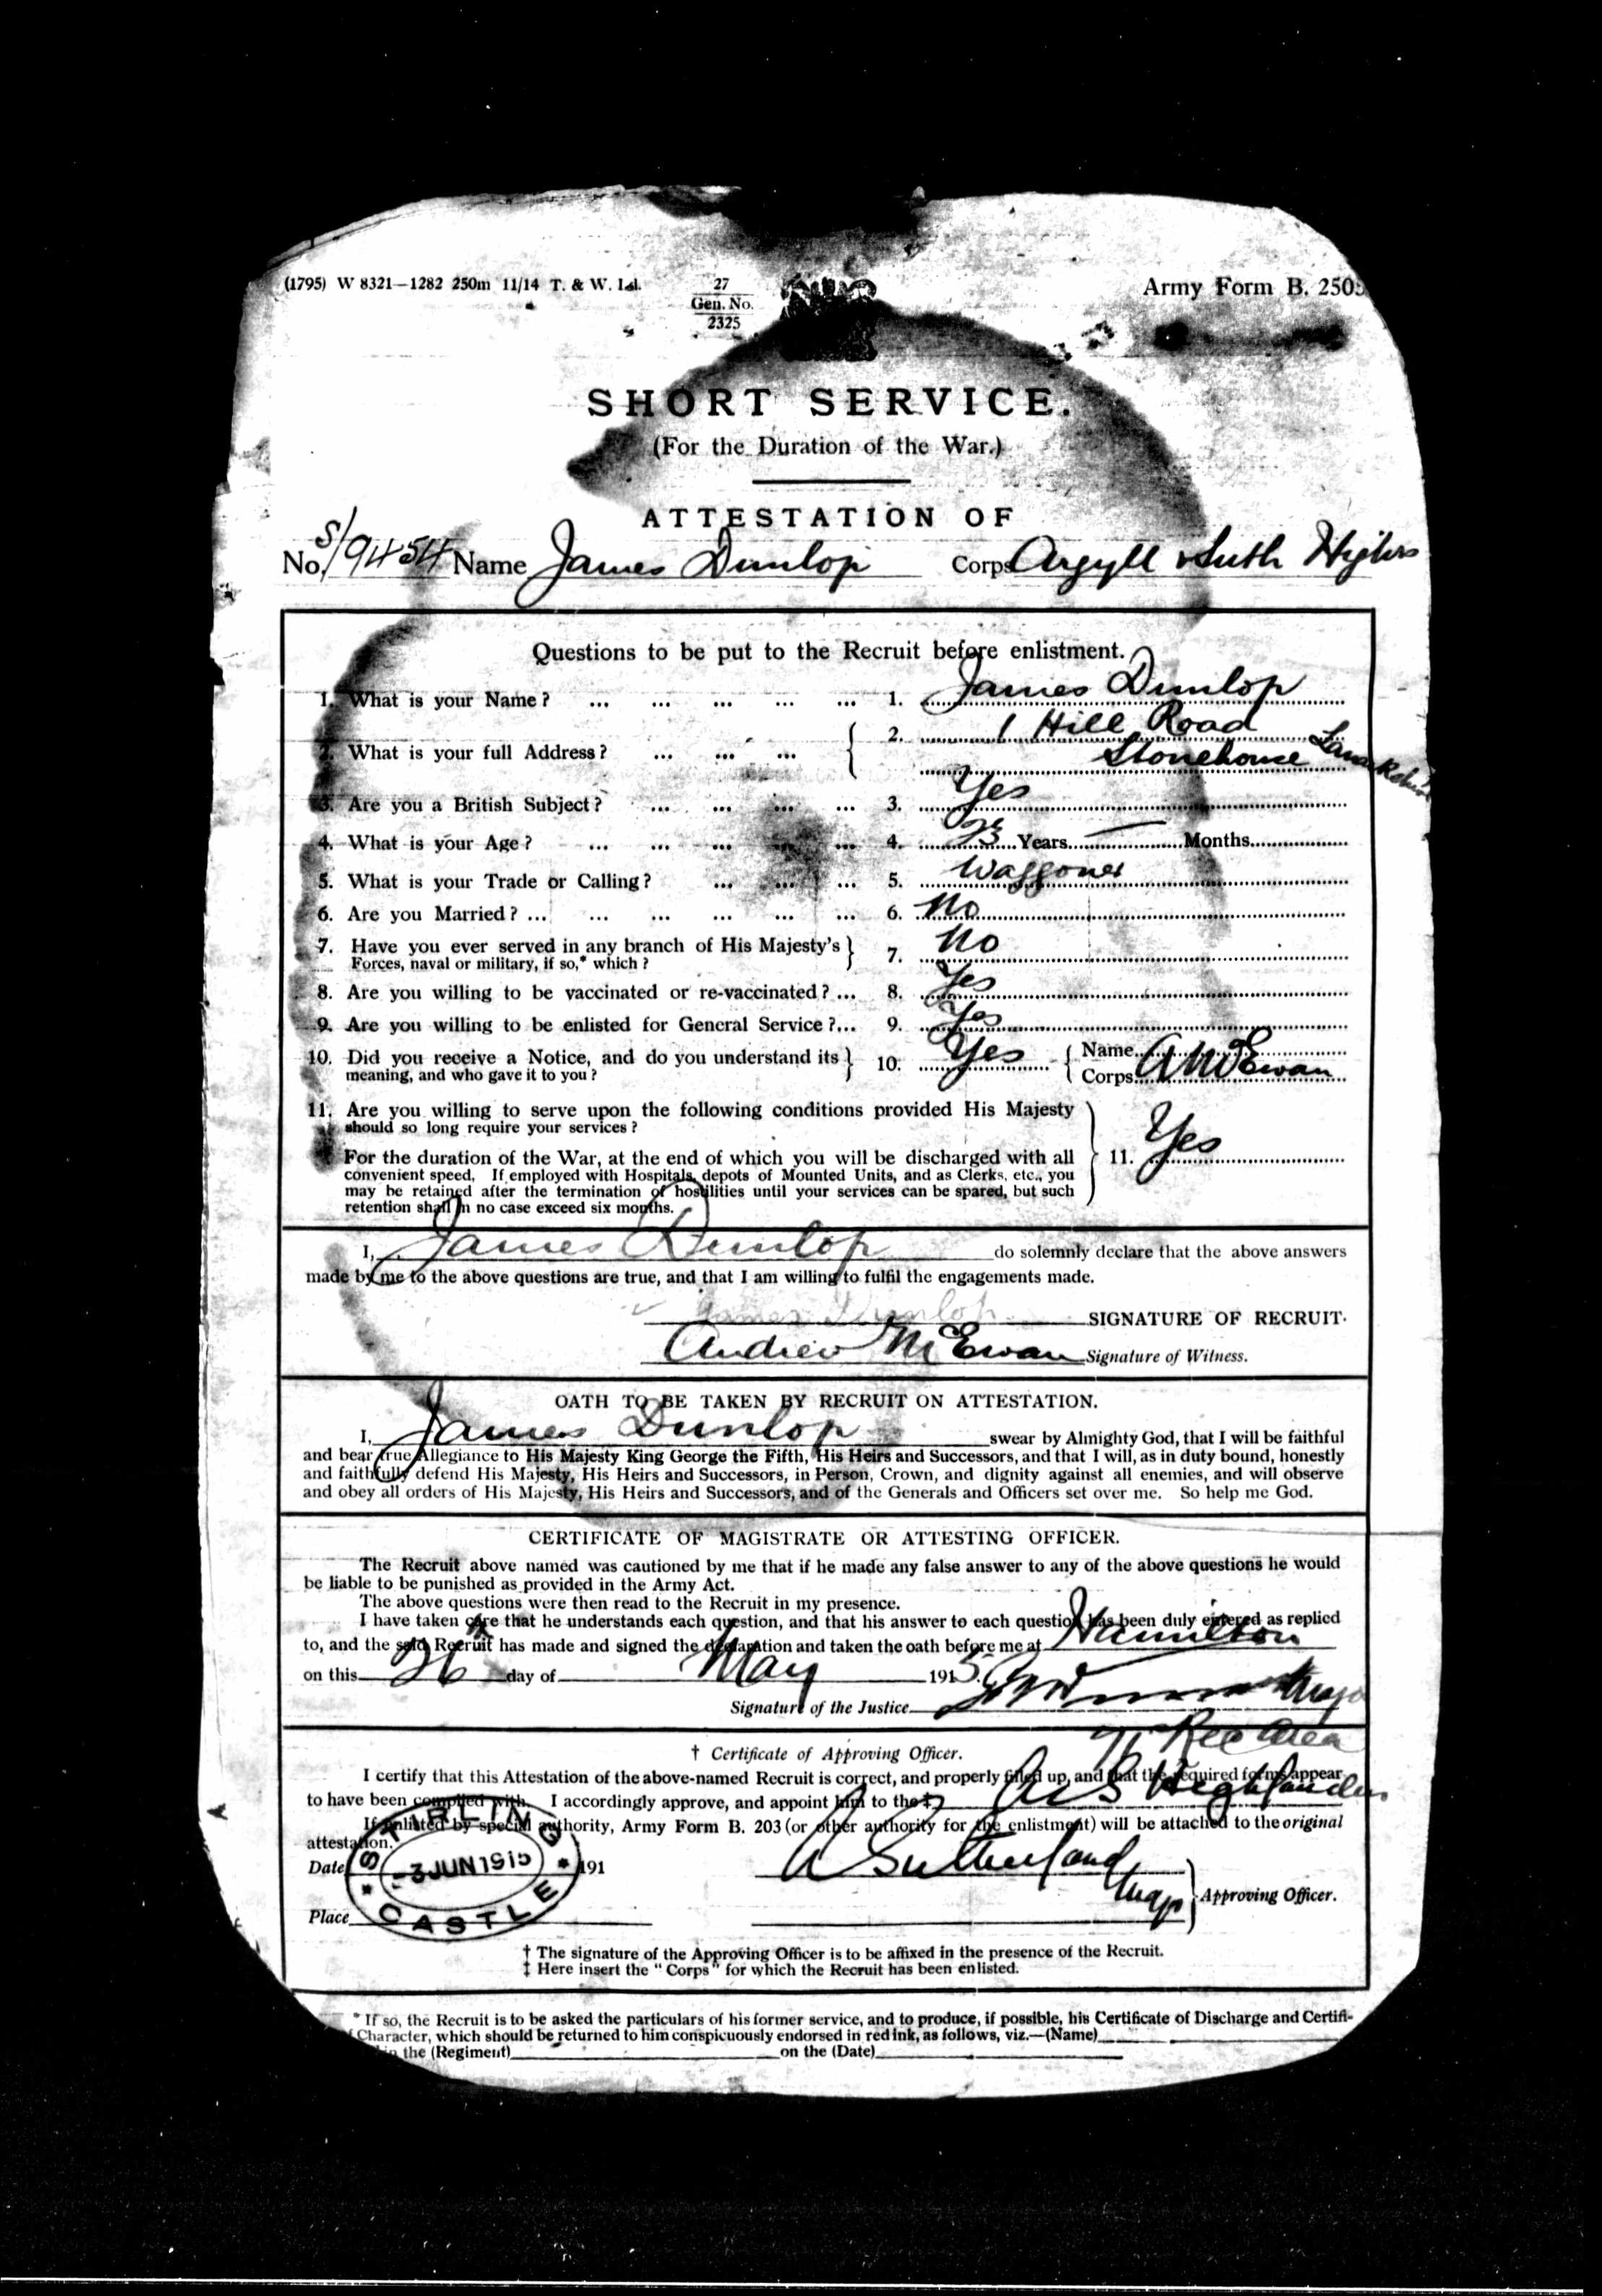 (1795) W 8321—1282 250m 11/14 T. & W. Ld. 27 Army Form B. 250
Gen. No.
2325
SHORT SERVICE.
(For the Duration of the War.)
ATTESTATION OF
No. S/9454 Name James Dunlop Corps Argyll & Suth Highrs
Questions to be put to the Recruit before enlistment.
1. What is your Name? ... ... ... ... ... 1. James Dunlop
2. What is your full Address? ... ... ... 2. 1 Hill Road
Stonehouse Lanarkshire
3. Are you a British Subject? ... ... ... ... 3. Yes
4. What is your Age? ... ... ... ... ... 4. Years Months
5. What is your Trade or Calling? ... ... ... 5. Waggoner
6. Are you Married? ... ... ... ... ... ... 6. No
7. Have you ever served in any branch of His Majesty's } 7. No
Forces, naval or military, if so,* which?
8. Are you willing to be vaccinated or re-vaccinated? ... 8. Yes
9. Are you willing to be enlisted for General Service?... 9. Yes
10. Did you receive a Notice, and do you understand its } 10. Yes { Name
meaning, and who gave it to you? Corps A McEwan
11. Are you willing to serve upon the following conditions provided His Majesty
should so long require your services?
For the duration of the War, at the end of which you will be discharged with all } 11. Yes
convenient speed. If employed with Hospitals, depots of Mounted Units, and as Clerks, etc., you
may be retained after the termination of hostilities until your services can be spared, but such
retention shall in no case exceed six months.
I, James Dunlop do solemnly declare that the above answers
made by me to the above questions are true, and that I am willing to fulfil the engagements made.
James Dunlop SIGNATURE OF RECRUIT.
Andrew McEwan Signature of Witness.
OATH TO BE TAKEN BY RECRUIT ON ATTESTATION.
I, James Dunlop swear by Almighty God, that I will be faithful
and bear true Allegiance to His Majesty King George the Fifth, His Heirs and Successors, and that I will, as in duty bound, honestly
and faithfully defend His Majesty, His Heirs and Successors, in Person, Crown, and dignity against all enemies, and will observe
and obey all orders of His Majesty, His Heirs and Successors, and of the Generals and Officers set over me. So help me God.
CERTIFICATE OF MAGISTRATE OR ATTESTING OFFICER.
The Recruit above named was cautioned by me that if he made any false answer to any of the above questions he would
be liable to be punished as provided in the Army Act.
The above questions were then read to the Recruit in my presence.
I have taken care that he understands each question, and that his answer to each question has been duly entered as replied
to, and the said Recruit has made and signed the declaration and taken the oath before me at Hamilton
on this 26th day of May 1915.
Signature of the Justice Major
Rec Area
† Certificate of Approving Officer.
I certify that this Attestation of the above-named Recruit is correct, and properly filled up, and that the required forms appear
to have been complied with. I accordingly approve, and appoint him to the ‡ A & S Highlanders
If enlisted by special authority, Army Form B. 203 (or other authority for the enlistment) will be attached to the original
attestation.
STIRLING
Date -3 JUN 1915 191 A Sutherland
Major } Approving Officer.
Place
CASTLE
† The signature of the Approving Officer is to be affixed in the presence of the Recruit.
‡ Here insert the "Corps" for which the Recruit has been enlisted.
* If so, the Recruit is to be asked the particulars of his former service, and to produce, if possible, his Certificate of Discharge and Certifi-
Character, which should be returned to him conspicuously endorsed in red ink, as follows, viz.—(Name)
in the (Regiment) on the (Date)